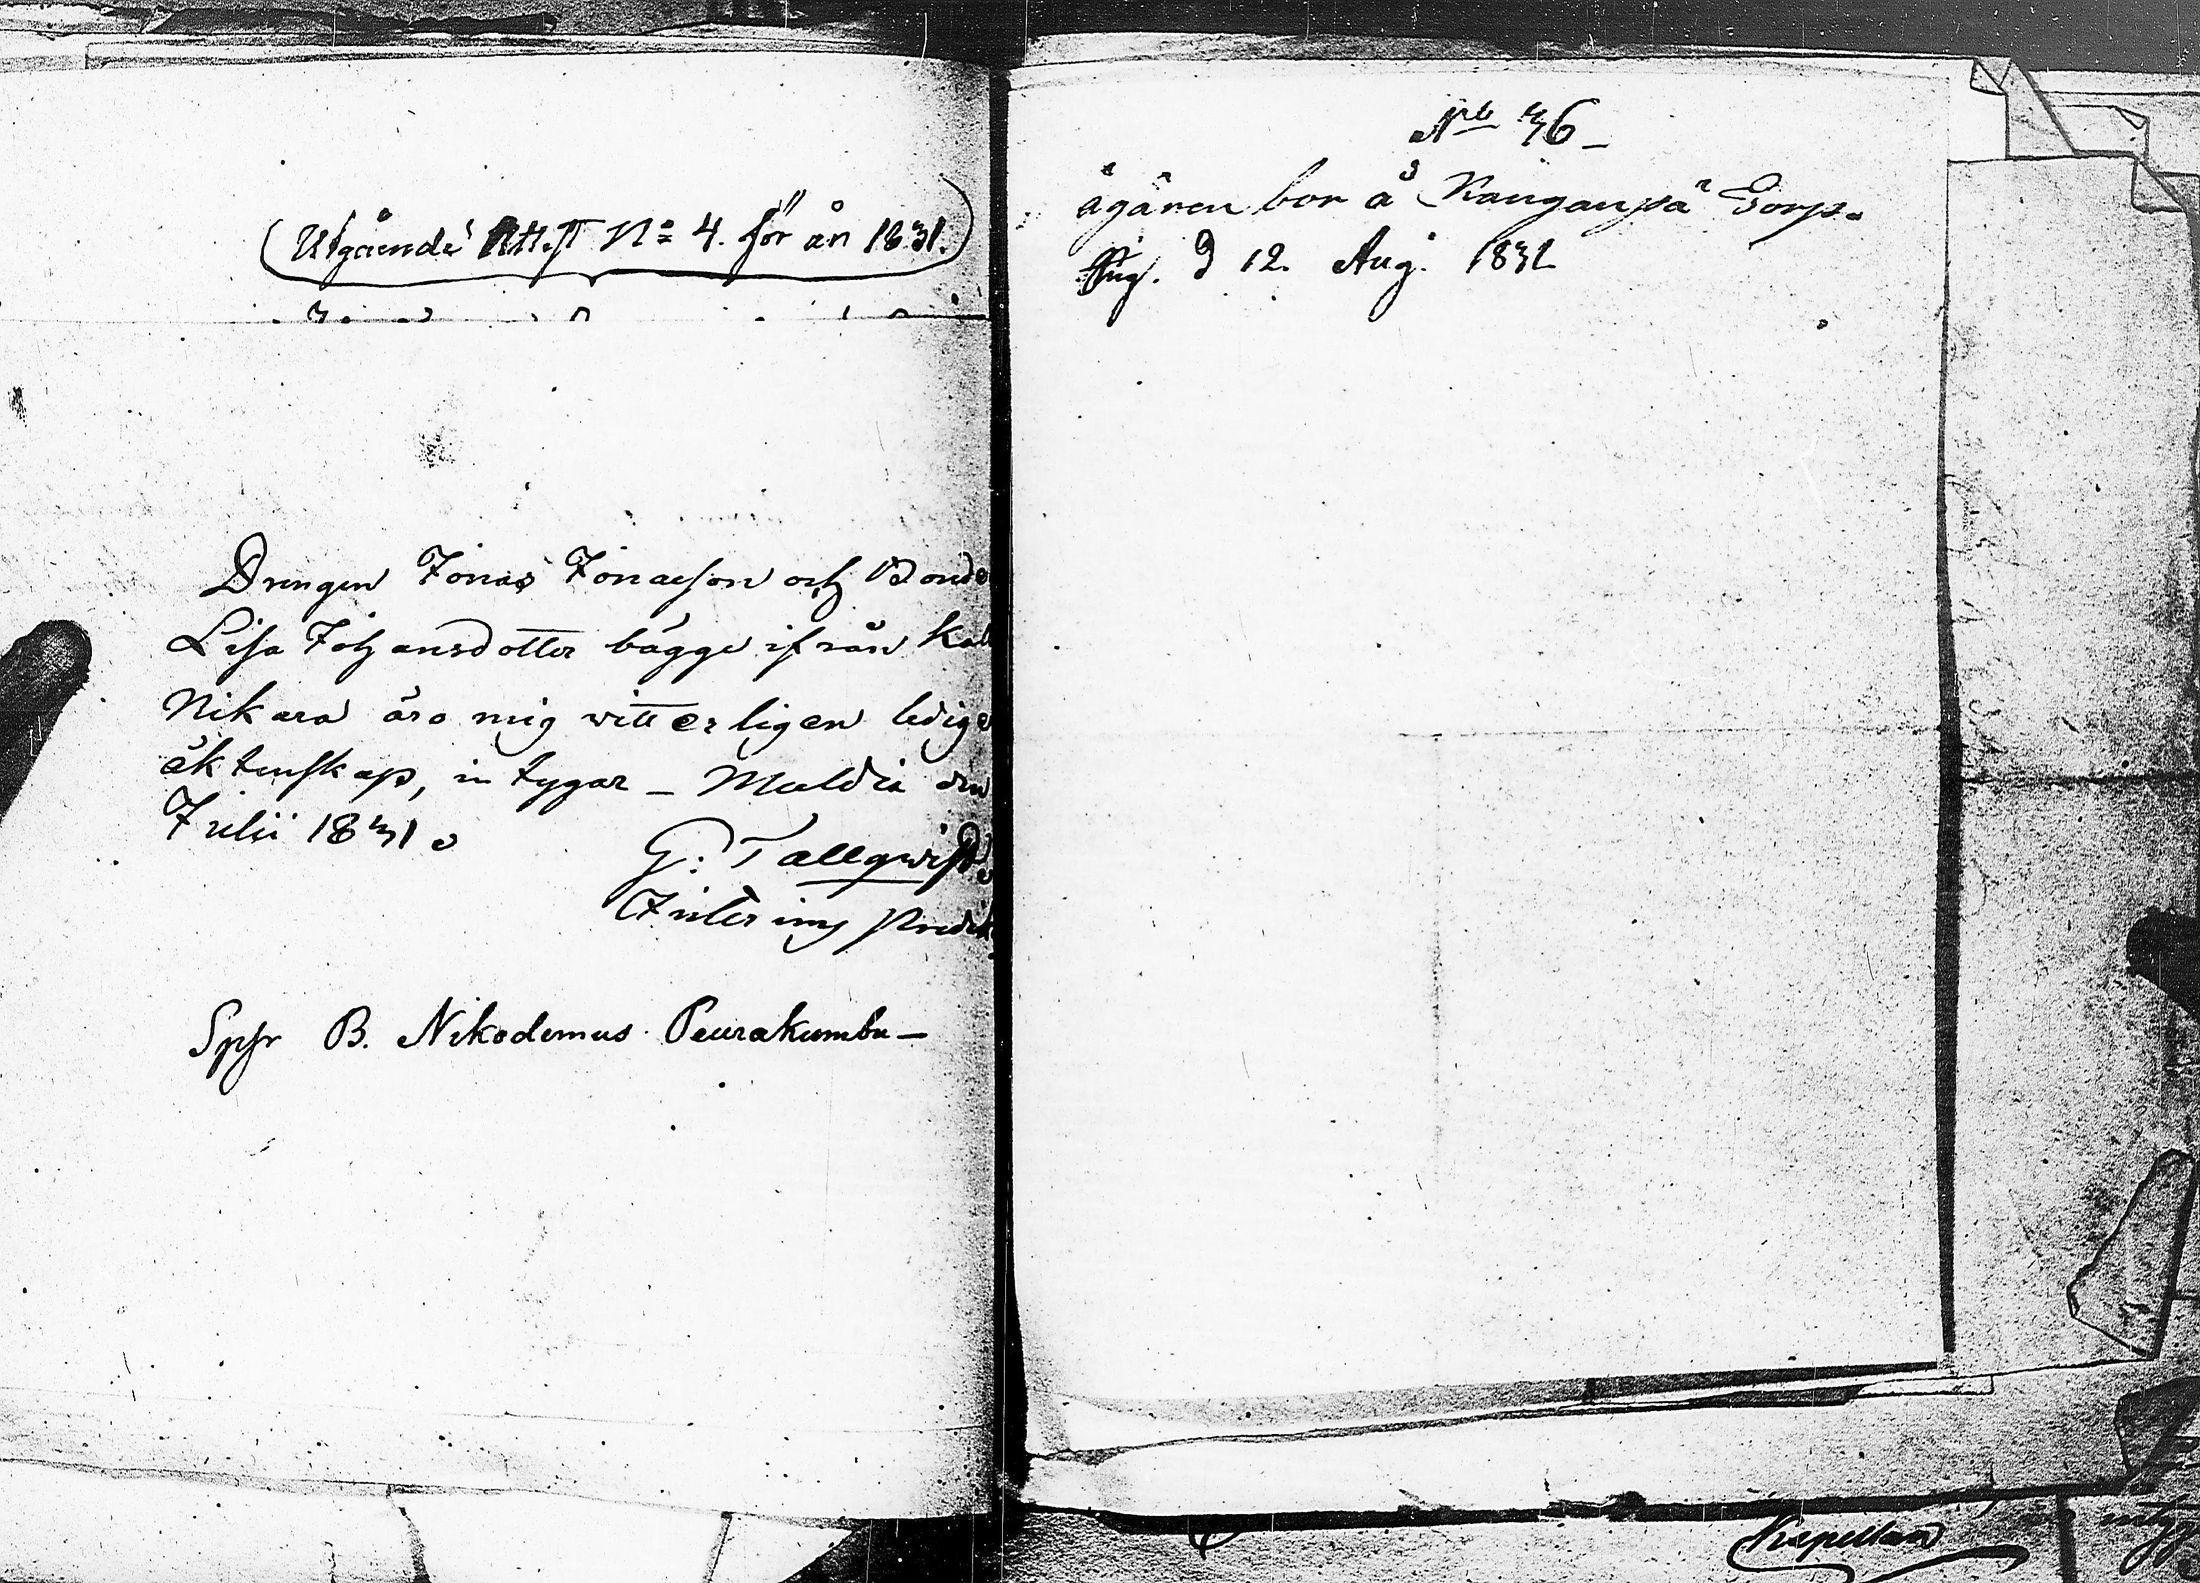 Utgående Attest No 4. för år 1831.
Drengen Jonas Jonasson och Bonde
Lisa Johansdotter bägge ifrån
Nikara äro mig witterligen ledige
äktenskap, intygar – Muldia den
Julii 1831.
G: Tallqwist.
Interims Predik
B. Nikodemus Peurakumbu –
No 36 –
ägaren bor å Kanganpä Torp.
d 12. Aug. 1831
Kapellan